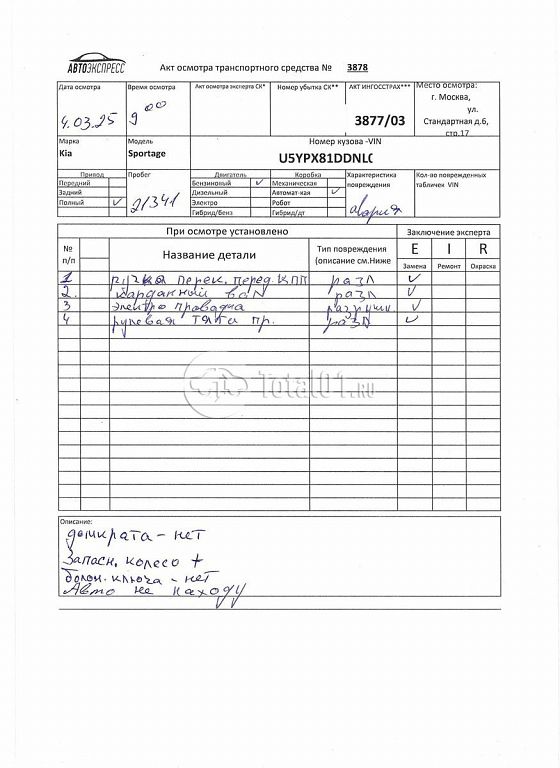 АВТОЭКСПРЕСС
Акт осмотра транспортного средства № 3878
Дата осмотра Время осмотра Акт осмотра эксперта СК* Номер убытка СК** АКТ ИНГОССТРАХ*** Место осмотра:
4.03.25 9 00 3877/03 г. Москва,
ул.
Стандартная д.6,
стр.17
Марка Модель Номер кузова -VIN
Kia Sportage U5YPX81DDNL
Привод Пробег Двигатель Коробка Характеристика повреждения Кол-во поврежденных табличек VIN
Передний Бензиновый ✓ Механическая
Задний Дизельный Автомат-кая ✓
Полный ✓ 21341 Электро Робот авария
Гибрид/бенз Гибрид/дт
При осмотре установлено Заключение эксперта
№ п/п Название детали Тип повреждения (описание см.Ниже E I R
Замена Ремонт Окраска
1 ручка перек. перед. КПП разл ✓
2. карданный вал разл ✓
3 электро проводка разруш ✓
4 рулевая тяга пр. разл ✓
Total01.RU
Описание:
домкрата - нет
Запасн. колесо +
болон. ключа - нет
Авто не на ходу